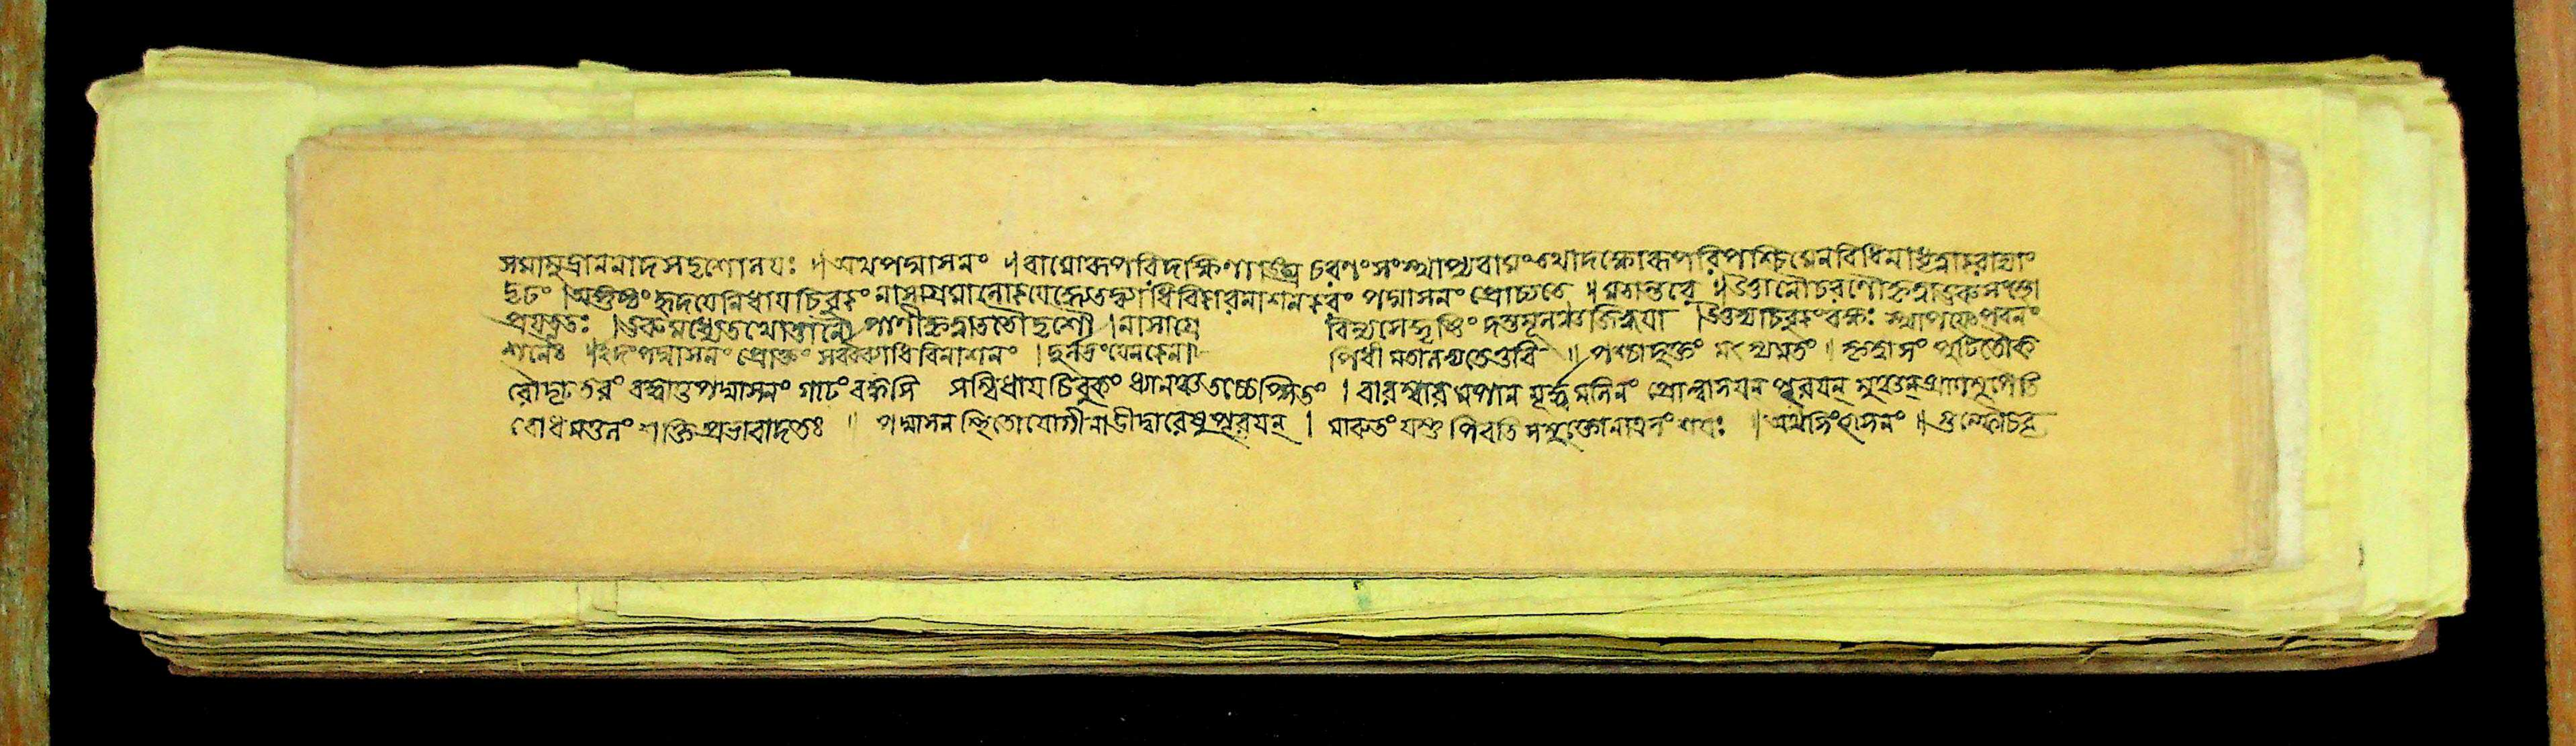 সদৃশোনযঃ ॥ অথপদ্মাসনং ॥ বামোরূপরিদক্ষিণাঞ্চ চরণং সংস্থাপ্যবামংতথাদক্ষোরূপরিপশ্চিমেনবিধিনাধৃত্বাকরাভ্যাং
দৃঢং । অঙ্গুষ্ঠং হৃদযেনিধাযচিবুকং নাসাগ্রমালোকযেদেতদ্ব্যাধিবিকারনাশনকরং পদ্মাসনং প্রোচ্যতে ॥ মতান্তরে ॥ উত্তানৌচরণৌকৃত্বাঊরুসংস্থৌ
প্রযত্নতঃ । ঊরুমধ্যেতথোত্তানৌ পাণীকৃত্বাততৌদৃশৌ । নাসাগ্রে বিন্যসেদ্দৃষ্টিং দন্তমূলঞ্চজিহ্বযা । উত্তভ্যচিবুকংবক্ষঃ স্থাপযেৎপবনং
শনৈঃ ॥ ইদংপদ্মাসনং প্রোক্তং সর্ব্বব্যাধিবিনাশনং । দুর্লভংযেনকেনা পিধীমতালভ্যতেভুবি ॥ পশ্চাদুক্তং মৎস্যমতং । কৃত্বাসংপুটিতৌক
রৌদৃঢতরং বদ্ধাতুপদ্মাসনং গাঢং বক্ষসি সন্নিধাযচিবুকং ধ্যানঞ্চতচ্চেপ্সিতং । বারম্বারমপানমূর্দ্ধমনিলং প্রোল্লাসযনপূরযন্ মুঞ্চনপ্রাণমুপৈতি
বোধমতুলং শক্তিপ্রভাবাদতঃ ॥ পদ্মাসনস্থিতোযোগীনাডীদ্বারেষুপূরযন্ । মারুতংযস্তুপিবতিসমুক্তোনাত্রসংশযঃ ॥ অথসিংহাসনং ॥ গুল্ফৌচবৃ